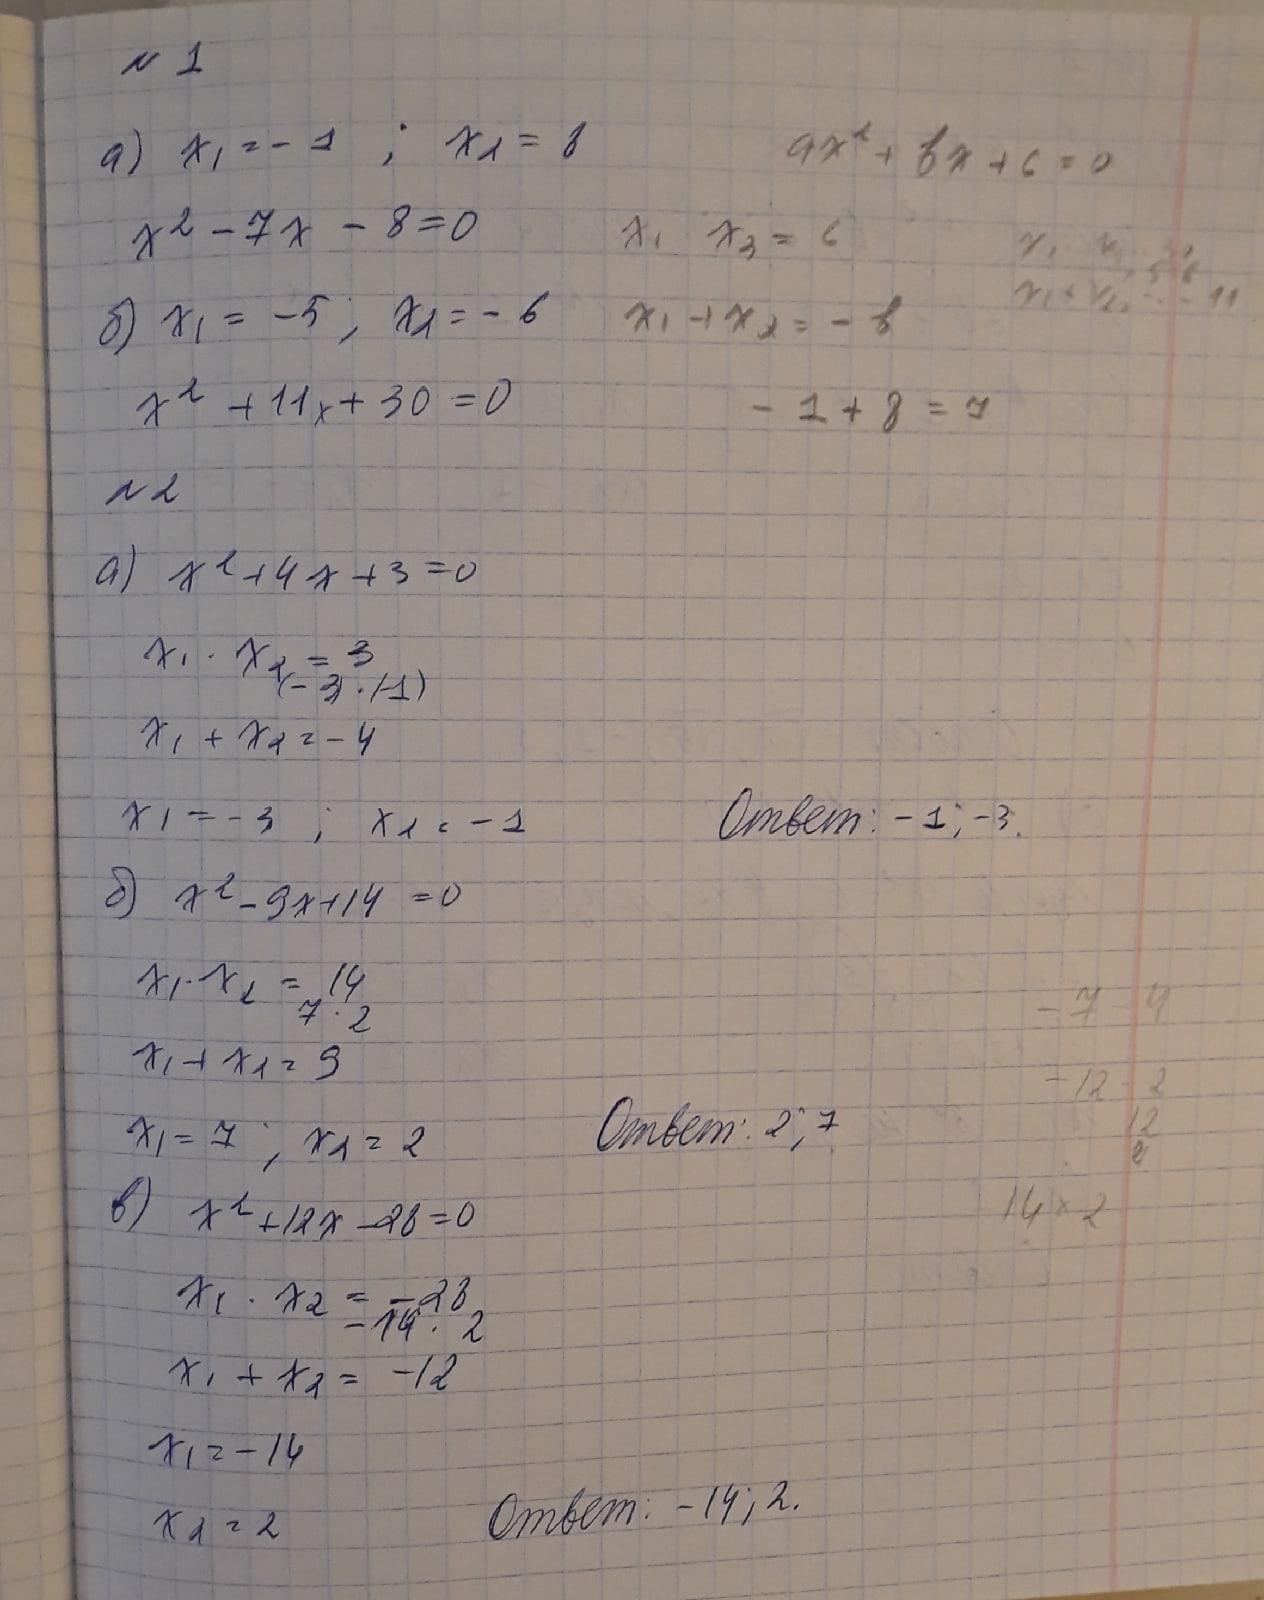 № 1
а) x₁ = -1 ; x₂ = 8
ax² + bx + c = 0
x² - 7x - 8 = 0
x₁ x₂ = c
б) x₁ = -5 ; x₂ = -6
x₁ + x₂ = -b
x² + 11x + 30 = 0
-1 + 8 = 7
№ 2
а) x² + 4x + 3 = 0
x₁ · x₂ = 3
(-3) · (-1)
x₁ + x₂ = -4
x₁ = -3 ; x₂ = -1
Ответ: -1; -3.
б) x² - 9x + 14 = 0
x₁ · x₂ = 14
7 · 2
x₁ + x₂ = 9
x₁ = 7 ; x₂ = 2
Ответ: 2; 7
-7 - 4
-12 - 2
12
14 × 2
в) x² + 12x - 28 = 0
x₁ · x₂ = -28
-14 · 2
x₁ + x₂ = -12
x₁ = -14
x₂ = 2
Ответ: -14; 2.